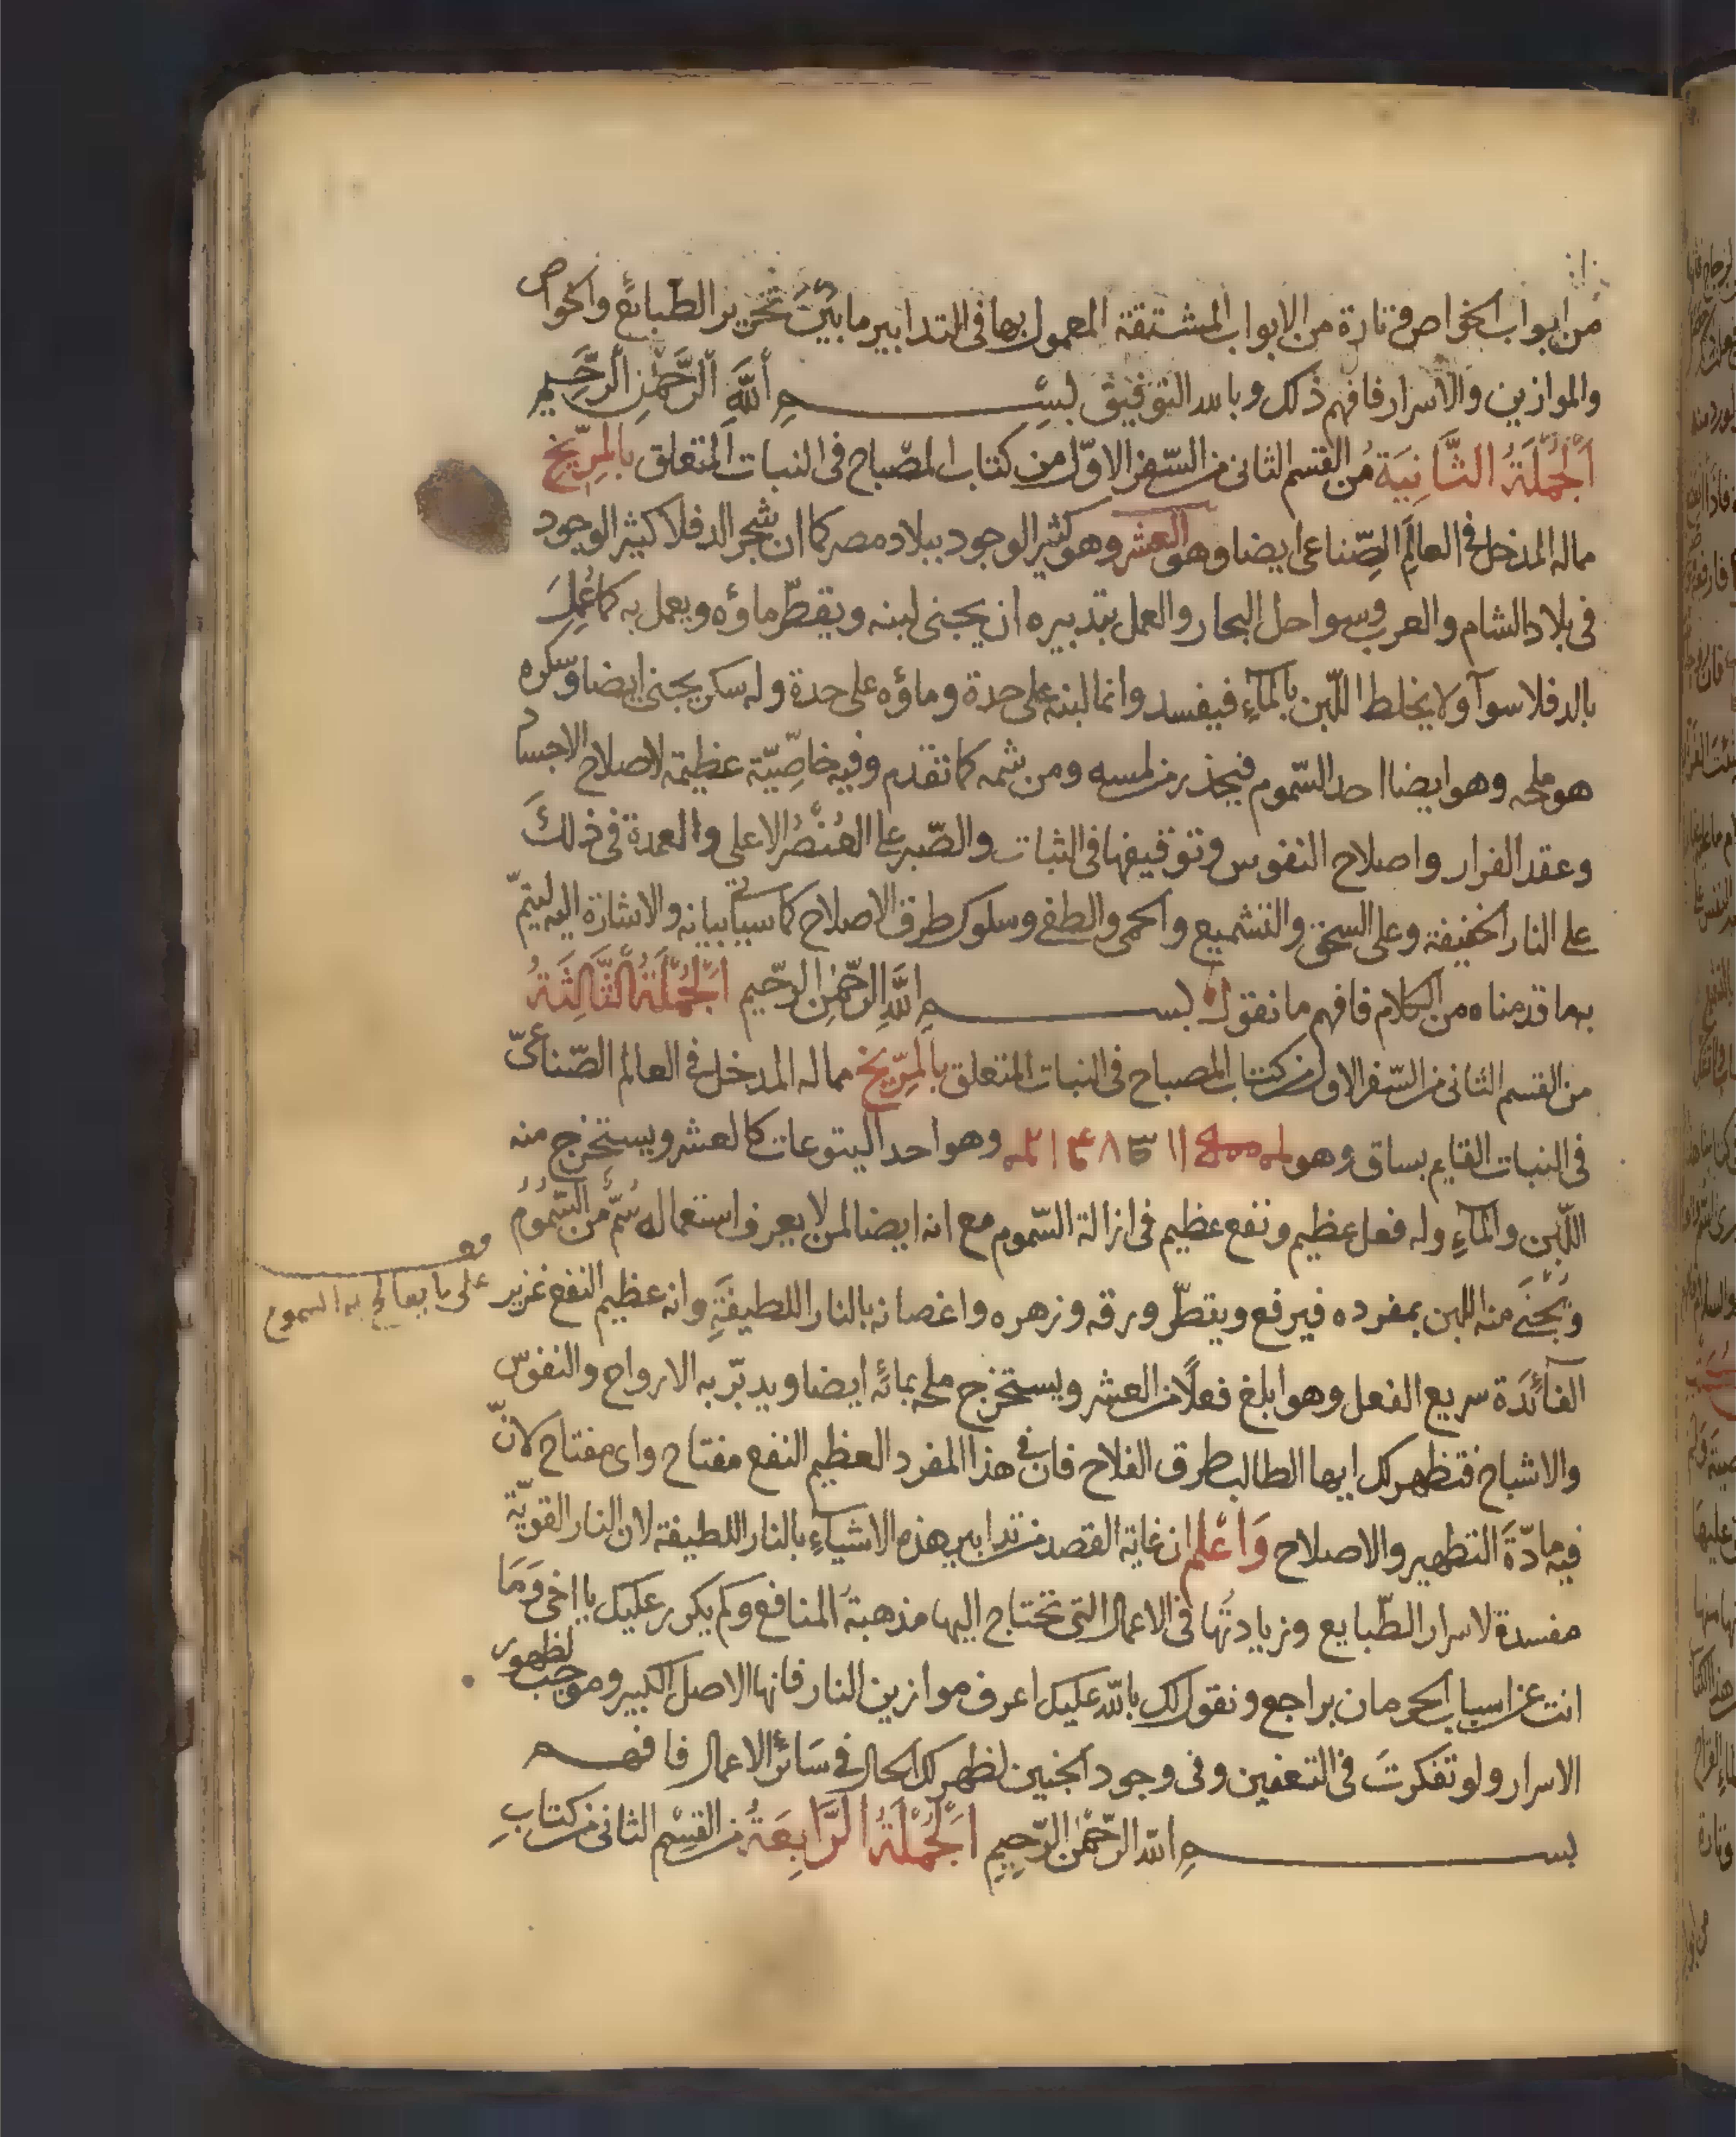 من ابواب الخواص وتارة من الابواب المشتقة المعمول بها فى التدابير ما بين تحرير الطبائع والخواص
والموازين والاسرار فافهم ذلك وبالله التوفيق بسم الله الرحمن الرحيم
اَلْجُمْلَةُ الثَّانِيَة من القسم الثانى من السّفر الاوّل من كتاب المصباح فى النبات المتعلق بالمِرّيخ
مما له المدخل فى العالم الصّناعى ايضا وهو العشر وهو كثير الوجود ببلاد مصر كما ان شجر الدفلا كثير الوجود
فى بلاد الشام والعرب وسواحل البحار والعمل بتدبيره ان يجنى لبنه ويقطّر ماؤه ويعمل به كما عُمِلَ
بالدفلا سوآ ولا يخلط اللّبن بالمآءِ فيفسد وانما لبنه على حدة وماؤه على حدة وله سكر يجنى ايضا وسكره
هو ملحه وهو ايضا احد السّموم فيحذر من لمسه ومن شمه كما تقدم وفيه خاصّيّة عظيمة لاصلاح الاجساد
وعقد الفرار واصلاح النفوس وتوقيفها فى الثبات والصّبر على العُنْصُر الاعلى والعمدة فى ذلكَ
على النار الخفيفة وعلى السحق والتشميع والحمى والطفى وسلوك طرق الاصلاح كما سيأتى بيانه والاشارة اليه ليتمّ
بها قدمناه من الكلام فافهم ما نقول بسم اللهِ الرحمنِ الرحيم اَلْجُمْلَةُ الثَّالِثَةُ
من القسم الثانى من السّفر الاول من كتاب المصباح فى النبات المتعلق بالمِرّيخ مما له المدخل فى العالم الصّناعىّ
فى النبات القايم بساق وهو وهو احد اليتوعات كالعشر ويستخرج منه
اللّبن والمآءِ وله فعل عظيم ونفع عظيم فى ازالة السّموم مع انه ايضا لمن لا يعرف استعماله سُمّ من السّمُوم
معـ
على ما يعالج به السموم
ويُجْنَى منه اللبن بمفرده فيرفع ويقطّر ورقه وزهره واغصانه بالنار اللطيفةِ وانه عظيم النفع غزير
الفآئدة سريع الفعل وهو ابلغ فعلًا من العشر ويستخرج ملحه بمائه ايضا ويدبّر به الارواح والنفوس
والاشباح فتظهر لك ايها الطالب طرق الفلاح فان فى هذا المفرد العظيم النفع مفتاح واى مفتاح لانّ
فيه مادّةَ التطهير والاصلاح وَاَعْلَم ان غاية القصد من تدابير هذه الاشيآءِ بالنار اللطيفة لان النار القويّة
مفسدة لاسرار الطّبايع وزيادتُها فى الاعمال التى تحتاج اليها مذهبةُ المنافع وكم يكرر عليك يا اخى وَمَا
انت عن اسباب الحرمان براجع ونقول لك بالله عليك اعرف موازين النار فانها الاصل الكبير وموجب لظهور
الاسرار ولو تفكرتَ فى التعفين وفى وجود الجنين لظهر لك الحال فى سَائر الاعمال فافهم
بسم الله الرّحمن الرّحيم اَلْجُمْلَةُ الرَّابِعَةُ من القِسْم الثانى من كتابِ